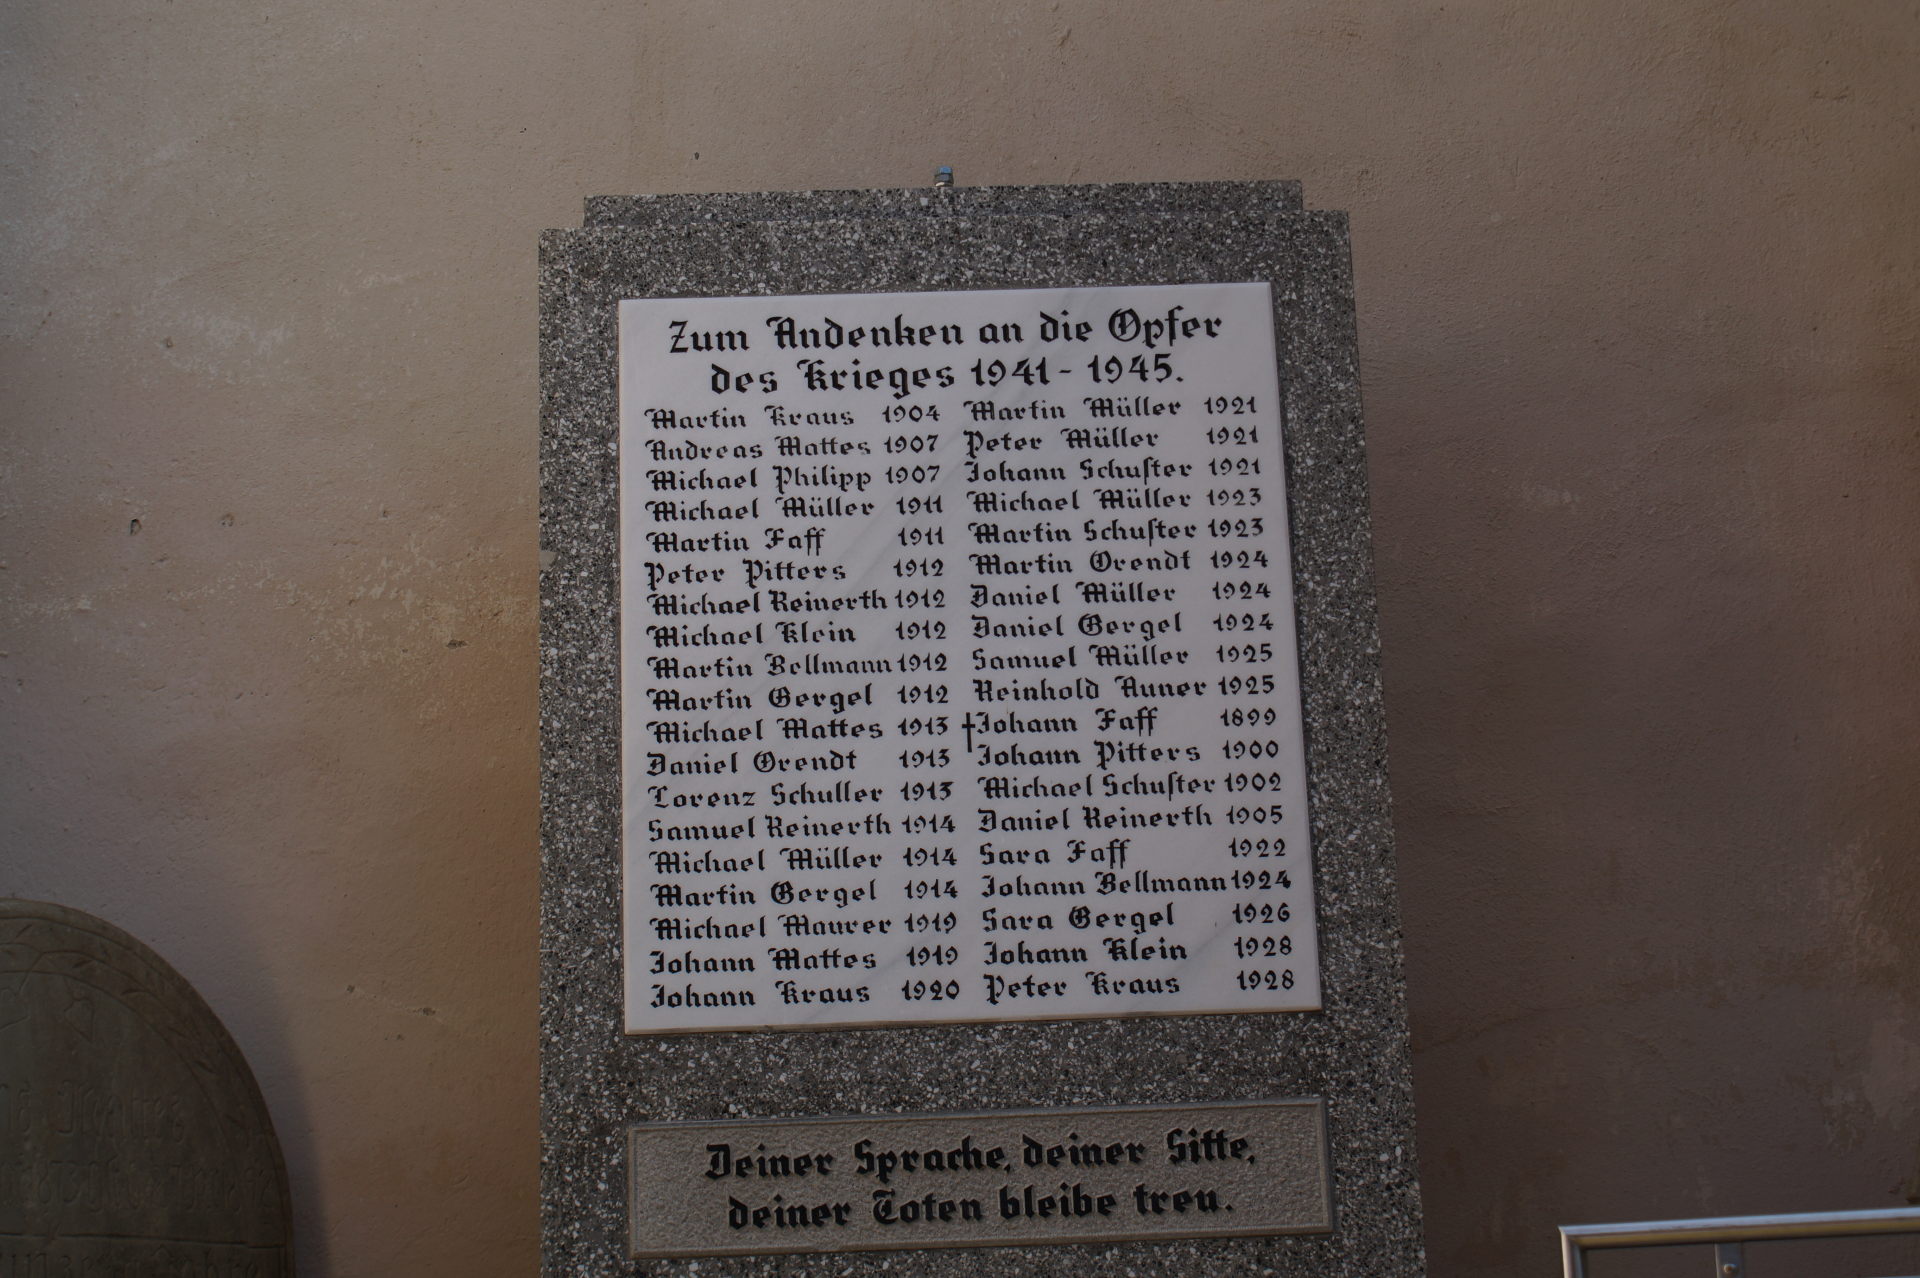 Zum Andenken an die Opfer
des Krieges 1941 - 1945.
Martin Kraus 1904
Andreas Mattes 1907
Michael Philipp 1907
Michael Müller 1911
Martin Faff 1911
Peter Pitters 1912
Michael Reinerth 1912
Michael Klein 1912
Martin Bellmann 1912
Martin Gergel 1912
Michael Mattes 1913
Daniel Orendt 1913
Lorenz Schuller 1913
Samuel Reinerth 1914
Michael Müller 1914
Martin Gergel 1914
Michael Maurer 1919
Johann Mattes 1919
Johann Kraus 1920
Martin Müller 1921
Peter Müller 1921
Johann Schuſter 1921
Michael Müller 1923
Martin Schuſter 1923
Martin Orendt 1924
Daniel Müller 1924
Daniel Gergel 1924
Samuel Müller 1925
Reinhold Auner 1925
†Johann Faff 1899
Johann Pitters 1900
Michael Schuſter 1902
Daniel Reinerth 1905
Sara Faff 1922
Johann Bellmann 1924
Sara Gergel 1926
Johann Klein 1928
Peter Kraus 1928
Deiner Sprache, deiner Sitte,
deiner Toten bleibe treu.